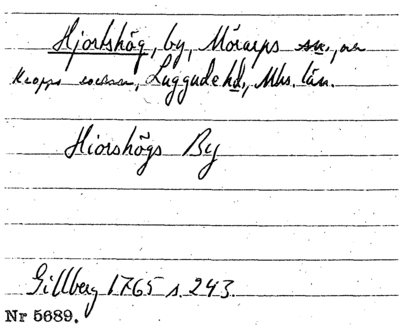 Hjortshög, by, Mörarps sn., och
Kropps socknar, Luggude hd., Mhs. län.
Hiorshögs By
Gillberg 1765 s. 243.
Nr 5689.